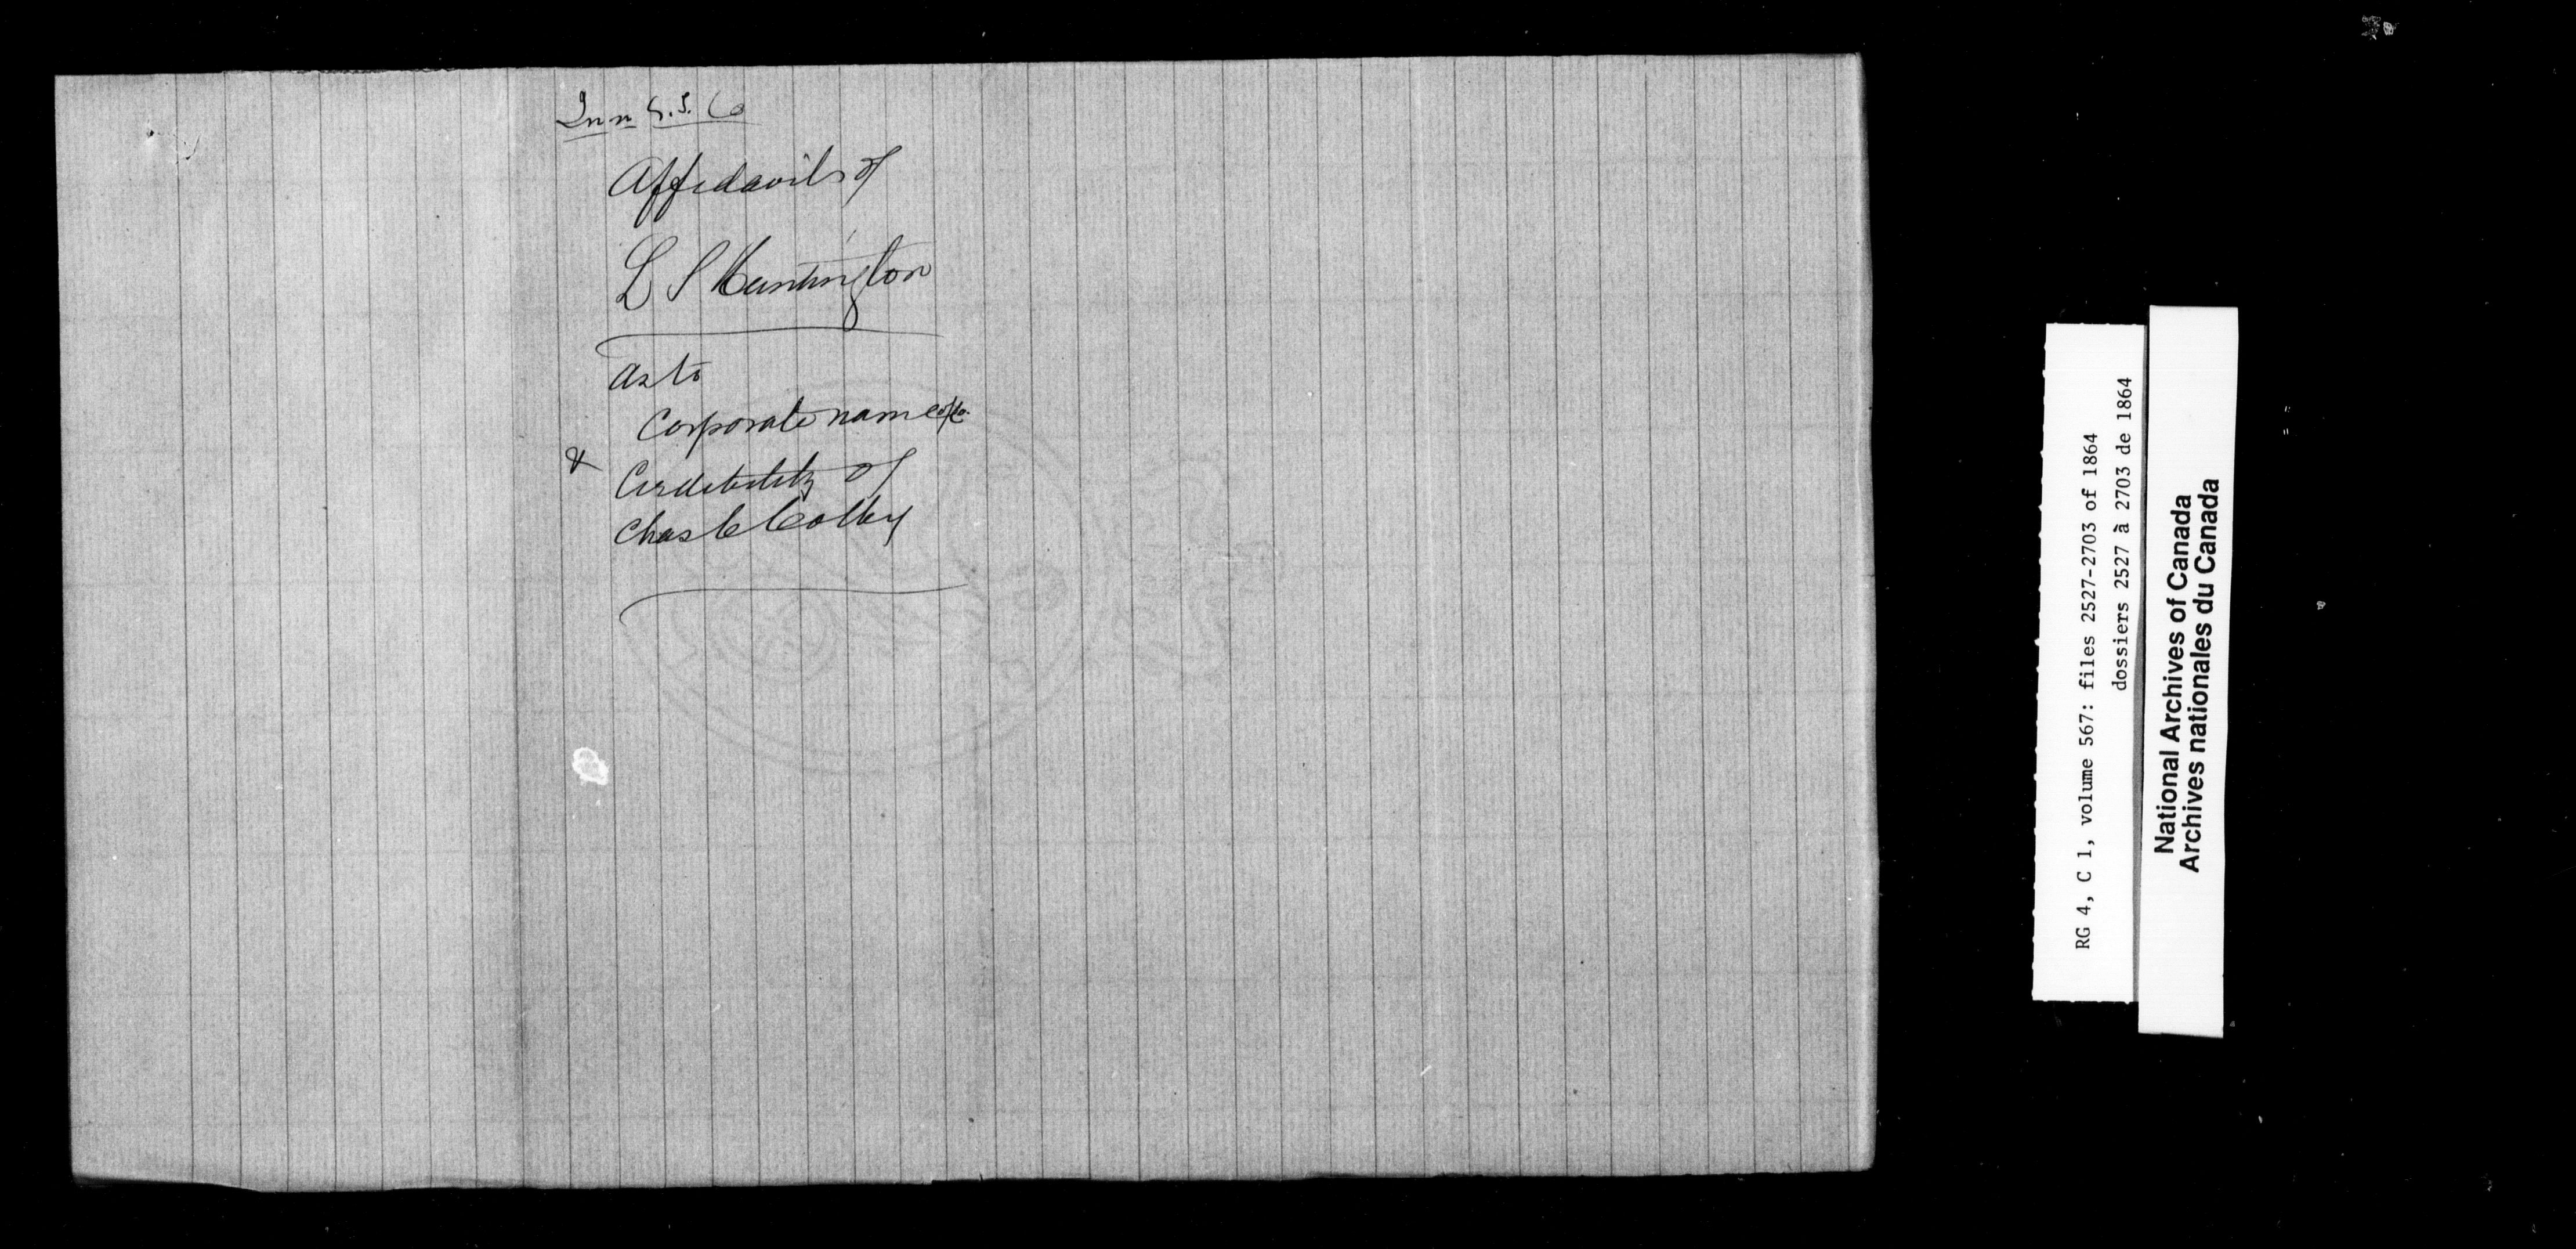 In re S. S. Co
Affidavits of
L S Huntington
as to
Corporate name of Co.
& Credibility of
Chas C Colby
RG 4, C 1, volume 567: files 2527-2703 of 1864
dossiers 2527 à 2703 de 1864
National Archives of Canada
Archives nationales du Canada